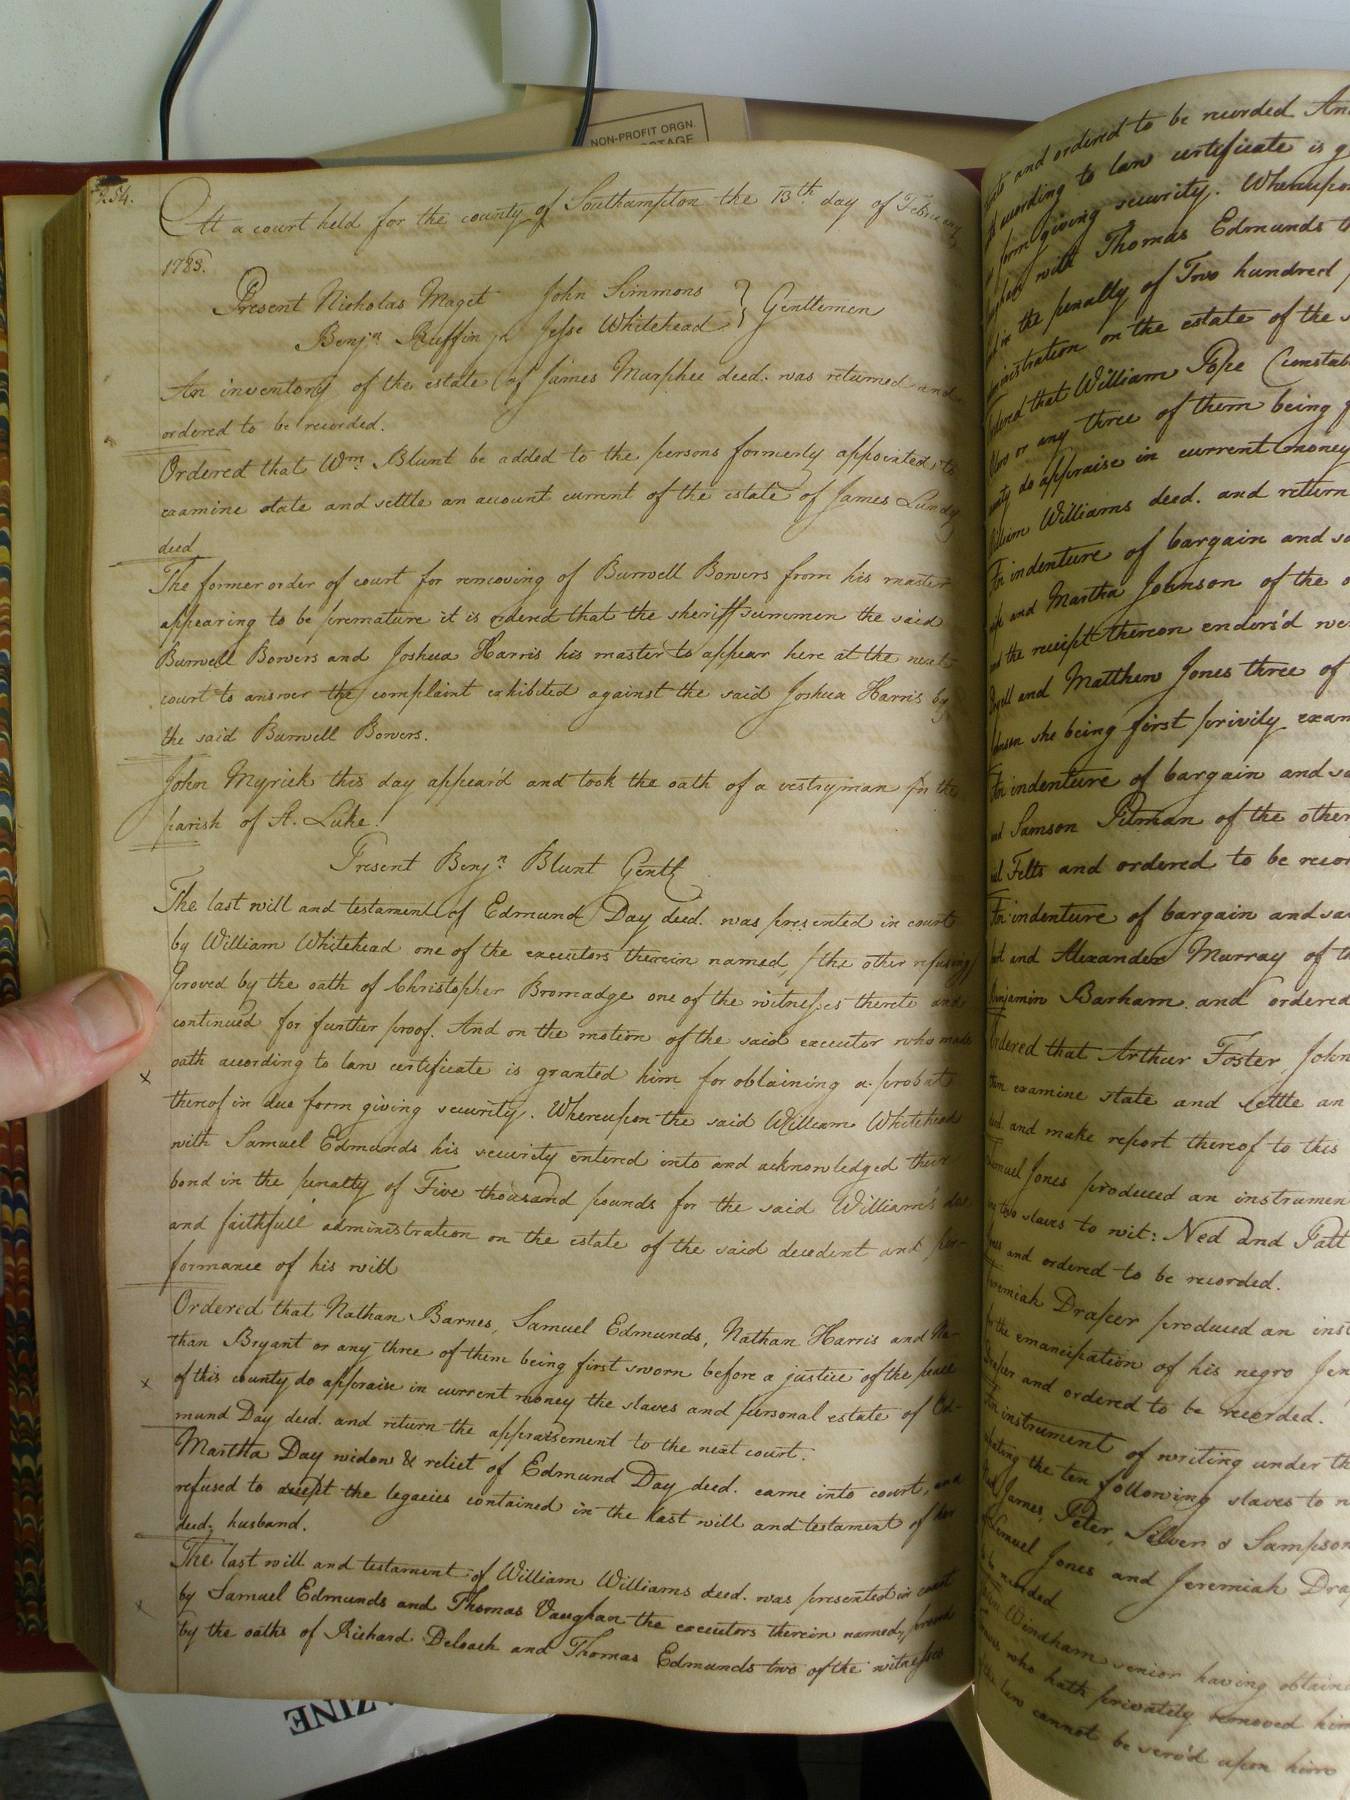 NON-PROFIT ORGN.
254.
At a court held for the county of Southampton the 13th day of February
1783.
Present Nicholas Maget John Simmons } Gentlemen
Benjn Ruffin jr Jesse Whitehead
An inventory of the estate of James Murphee deed. was returned and
ordered to be recorded.
Ordered that Wm. Blunt be added to the persons formerly appointed to
examine state and settle an account current of the estate of James Lundy
deed
The former order of court for removing of Burwell Bowers from his master
appearing to be premature it is ordered that the sheriff summon the said
Burwell Bowers and Joshua Harris his master to appear here at the next
court to answer the complaint exhibited against the said Joshua Harris by
the said Burwell Bowers.
John Myrick this day appear'd and took the oath of a vestryman for the
parish of St. Luke.
Present Benjn. Blunt Gentl
The last will and testament of Edmund Day deed. was presented in court
by William Whitehead one of the executors therein named, (the other refusing)
proved by the oath of Christopher Bromadge one of the witnesses thereto and
continued for further proof. And on the motion of the said executor who made
oath according to law certificate is granted him for obtaining a probat
thereof in due form giving security. Whereupon the said William Whitehead
with Samuel Edmunds his security entered into and acknowledged their
bond in the penalty of Five thousand pounds for the said William's due
and faithfull administration on the estate of the said decedent and per-
formance of his will
Ordered that Nathan Barnes, Samuel Edmunds, Nathan Harris and Na-
than Bryant or any three of them being first sworn before a justice of the peace
of this county do appraise in current money the slaves and personal estate of Ed-
mund Day deed. and return the appraisement to the next court.
Martha Day widow & relict of Edmund Day deed. came into court, and
refused to accept the legacies contained in the last will and testament of her
deed. husband.
The last will and testament of William Williams deed. was presented in court
by Samuel Edmunds and Thomas Vaughan the executors therein named, proved
by the oaths of Richard Deloach and Thomas Edmunds two of the witnesses
and ordered to be recorded And
according to law certificate is
form giving security. Whereupon
with Thomas Edmunds
the penalty of Two hundred
on the estate of the
that William Pope Constab
or any three of them being
do appraise in current money
Williams deed. and return
An indenture of bargain and sa
and Martha Johnson of the o
the receipt thereon endors'd
and Matthew Jones three of
she being first privily exam
An indenture of bargain and sa
and Samson Pitman of the other
Felts and ordered to be recor
An indenture of bargain and sa
and Alexander Murray of th
Benjamin Barham and ordered
Ordered that Arthur Foster, John
examine state and settle an
and make report thereof to this
Jones produced an instrumen
two slaves to wit: Ned and Patt
and ordered to be recorded.
Jeremiah Draper produced an inst
the emancipation of his negro
and ordered to be recorded.
An instrument of writing under th
the ten following slaves to
James, Peter, Silver & Sampson
Lemuel Jones and Jeremiah Dra
recorded
Windham senior having obtain
who hath privately removed him
law cannot be serv'd upon him
AZINE